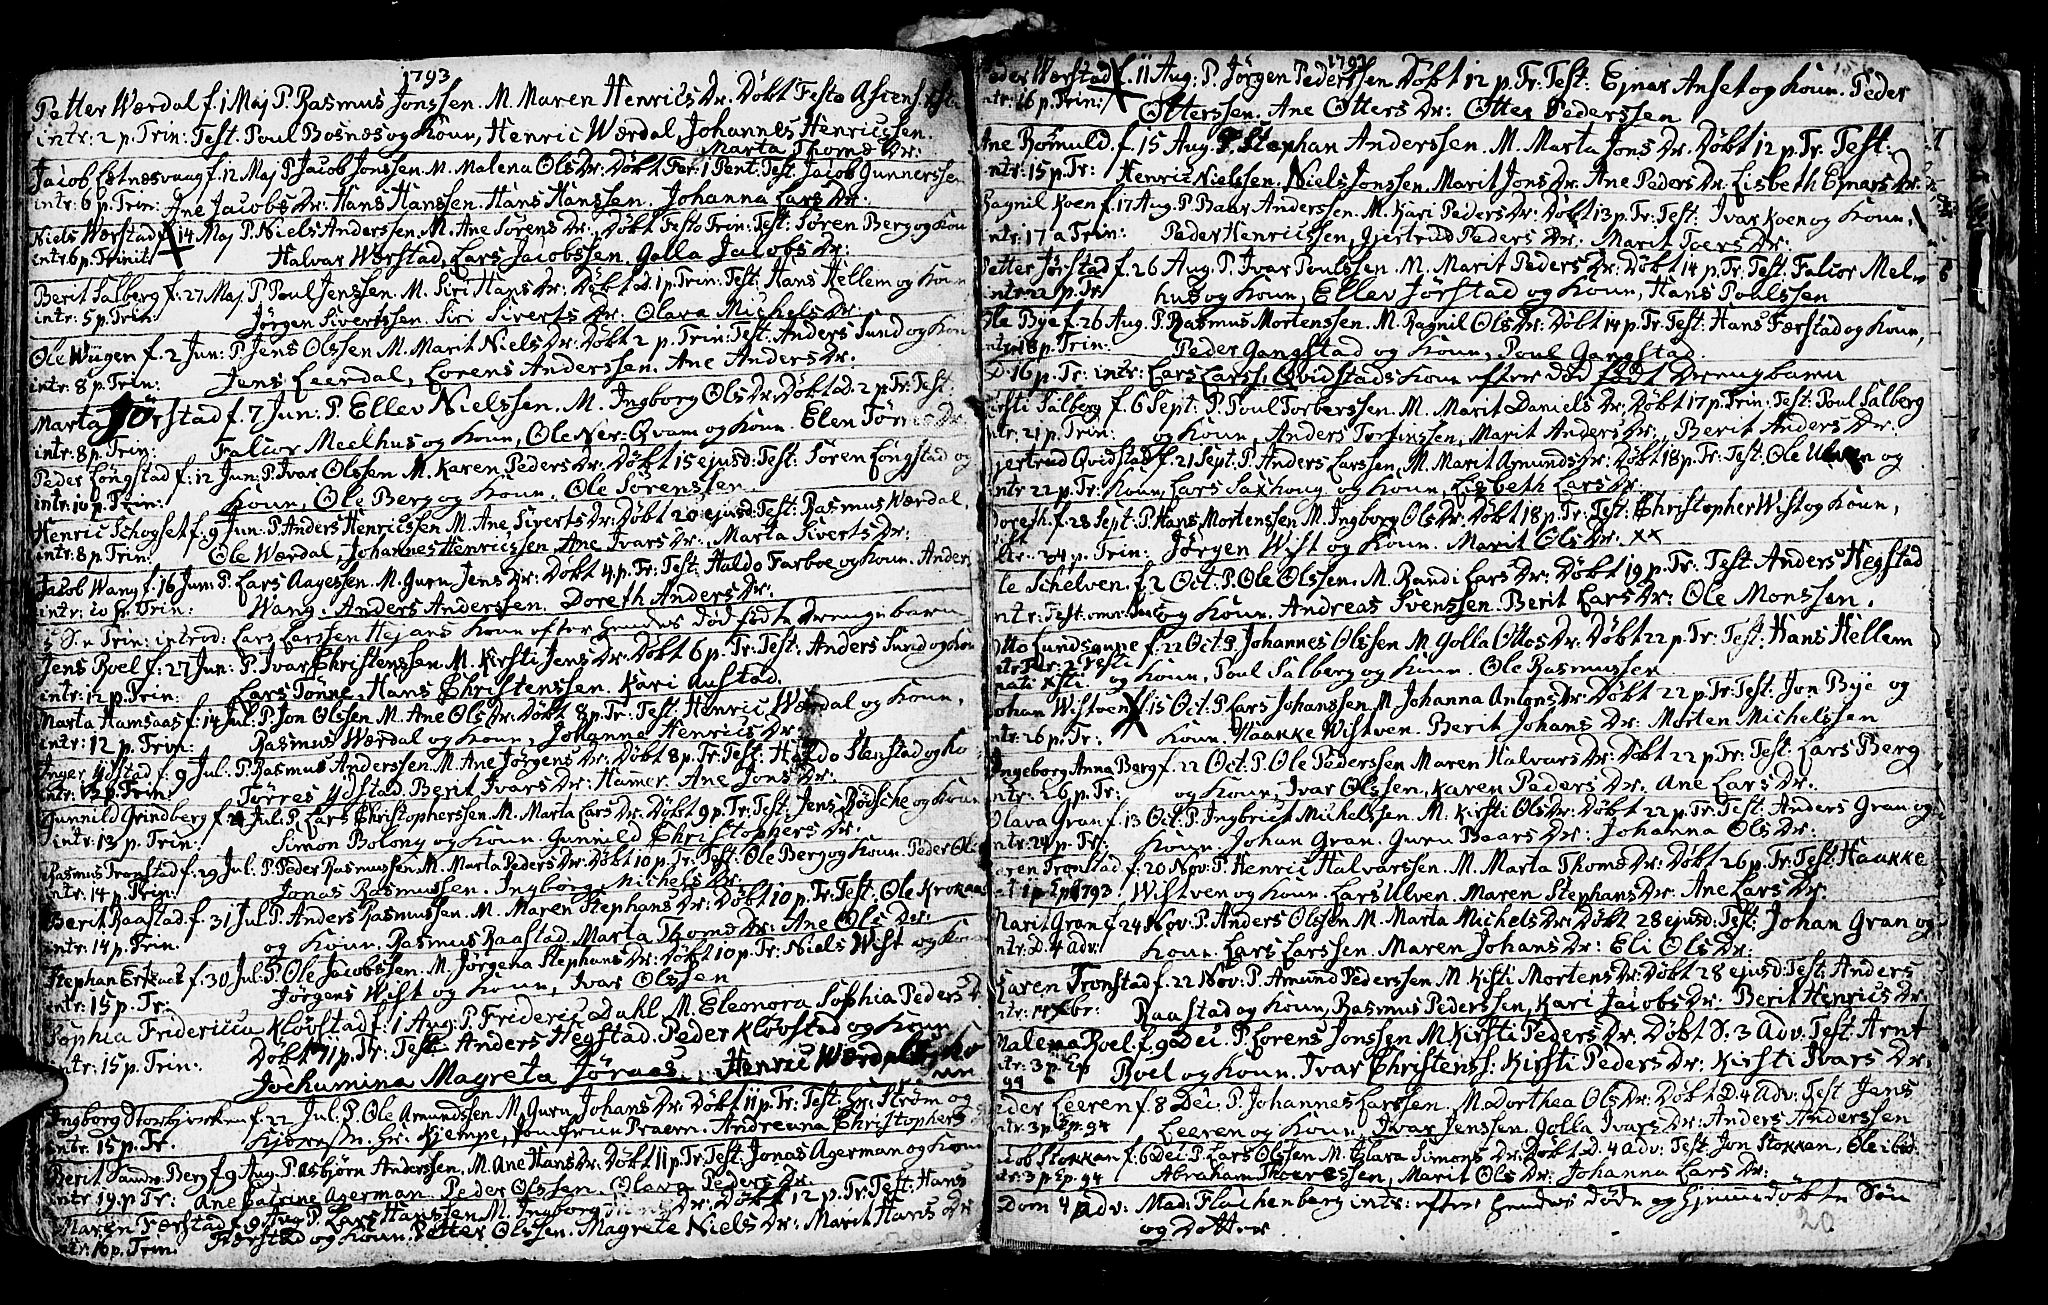 1793
Petter Wærdal f. 1 Maj P. Rasmus Jonssen. M. Maren Henrics Dr. Døbt Festo Ascens.
intr: 2 p. Trin: Test. Poul Bosnæs og Koun, Henric Wærdal, Johannes Henricssen.
Marta Thomæ Dr:
Jacob f. 12 Maj P. Jacob Jonssen. M. Malena Ols Dr: Døbt Fer: 1 Pent. Test. Jacob Gunnerssen
intr: 6 p. Trin: Ane Jacobs Dr: Hans Hanssen. Hans Hanssen. Johanna Lars Dr:
Niels Wærstad f. 14 Maj P. Niels Anderssen. M. Ane Sørens Dr: Døbt Festo Trin: Test: Søren Berg og Kou
intr. 6 p. Trinit: Halvar Wærstad, Lars Jacobssen, Golla Jacobs Dr:
Berit Salberg f. 27 Maj P. Poul Jenssen. M. Siri Hans Dr: Døbt D. 1 p. Trin: Test. Hans Hellem og Koun
intr: 5 p. Trin: Jørgen Sivertssen. Siri Siverts Dr: Olara Michels Dr:
Ole Wiigen f. 2 Jun: P. Jens Olssen M. Marit Niels Dr: Døbt 2 p. Trin: Test: Anders Sund og Kon
intr: 8 p. Trin: Jens Leerdal, Lorens Anderssen. Ane Anders Dr.
Marta Jörstad f. 7 Jun: P. Ellev Nielssen. M. Ingborg Ols Dr: Døbt d. 2 p. Tr: Test:
intr: 8 p. Trin: Falior Meelhus og Koun, Ole Ner-Qvam og Koun. Elen
Peder Longstad f. 12 Jun: P. Ivar Olssen M. Karen Peders Dr: Døbt 15 ejusd: Test: Søren Longstad og
intr: 10 p. Trin: Koun, Ole Berg og Koun. Ole Sørenssen
Henric Schogset f. 9 Jun: P. Anders Henricssen M. Ane Siverts Dr: Døbt 20 ejusd: Test: Rasmus Wærdal,
intr: 8 p. Trin: Ole Wærdal, Johannes Henricssen, Ane Ivars Dr: Marta Siverts Dr:
Jacob Wang f. 16 Jun: P. Lars Aagessen. M. Guru Jens Dr: Døbt 4 p. Tr: Test: Haldo Farboe og Koun. Anders
intr: 10 p. Trin: Wang. Anders Anderssen. Doreth Anders Dr:
Trin: introd: Lars Larssen Hejans Koun efter hendes død fødte drengebarn
Jens Roel f. 27 Jun: P. Ivar Christenssen. M. Kirsti Jens Dr: Døbt 6 p. Tr: Test: Anders Sund og Kou
intr: 12 p. Trin: Lars Tønne, Hans Christenssen. Kari Austad.
Marta Hamsaas f. 14 Jul: P. Jon Olssen M. Ane Ols Dr: Døbt 8 p. Tr: Test: Henric Wærdal og Koun,
intr: 12 p. Trin: Rasmus Wærdal og Koun, Johanne Henrics Dr:
Inger Ydstad f. 9 Jul: P. Rasmus Anderssen. M. Ane Jørgens Dr: Døbt 8 p. Tr: Test: Haldo Stenstad og Ko
intr: 13 p. Trin: Tørres Ydstad. Berit Ivars Dr: Hammer. Ane Jons Dr:
Gunnild Grindberg f. 21 Jul: P. Lars Christopherssen. M. Marta Lars Dr: Døbt 9 p. Tr: Test: Jens Rødsche og Koun
intr: 13 p. Trin: Simon Bolony og Koun. Gunnild Christophers Dr.
Rasmus Tronstad f. 29 Jul: P. Peder Rasmussen. M. Marta Peders Dr: Døbt 10 p. Tr: Test: Ole Berg og Koun. Peder
intr: 14 p. Trin: Jonas Rasmussen. Ingborg Michels Dr:
Berit Raastad f. 31 Jul: P. Anders Rasmussen. M. Maren Stephans Dr: Døbt 10 p. Tr: Test. Ole Krokaas
intr: 14 p. Trin. og Koun. Rasmus Raastad, Marta Thomæ Dr: Ane Ole Dr:
Stephan f. 30 Jul: P. Ole Jacobssen. M. Jørgena Stephans Dr: Døbt 10 p. Tr: Niels Wist og Koun
intr: 15 p. Tr. Jörgens Wist og Koun, Ivar Olssen
Sophia Fridericia Klövstad f. 1 Aug: P. Frideric Dahl M. Eleonora Sophia Peders D
intr: 15 p. Trin: Døbt 11 p. Tr: Test: Anders Hegstad. Peder Klövstad og Koun
Jochumina Magreta Jöraas. Henric Wærdal og Ko
un
Ingborg f. 22 Jul: P. Ole Amundssen M. Guru Johans Dr: Døbt 11 p. Tr: Test: Hr: Strøm og
intr: 15 p. Tr. Hr: Kjempe, Jomfru Praem. Andreana Christophers
Berit f. 9 Aug. P. Asbjörn Anderssen. M. Ane Hans Dr: Døbt 11 p. Tr: Test Jonas Agerman og Koun
intr. 19 p Tr: Ane Catrine Agerman. Peder Olssen. Olava Peders Dr.
Maren Færstad f. 9 Aug P. Lars Hanssen M. Ingborg Dr: Døbt 12 p. Tr: Test: Hans
intr. 16 p. Trin: Færstad og Koun. Petter Olssen. Magrete Niels Dr: Marit Hans Dr
1793
Peder Wærstad f. 11 Aug: P. Jörgen Pederssen. Døbt 12 p. Tr: Test: Ejnar Anset og Koun. Peder
intr. 16 p. Trin: Otterssen. Ane Otters Dr: Otter Pederssen
Ane Römuld f. 15 Aug. P. Stephan Anderssen. M. Marta Jons Dr. Døbt 12 p. Tr. Test:
intr: 15 p. Tr: Henric Nielssen. Niels Jonssen. Marit Jons Dr: Ane Peders Dr. Lisbeth Ejnars Dr:
Ragnil Koen f. 17 Aug. P. Baar Anderssen. M. Kari Peders Dr: Døbt 13 p. Tr: Test: Ivar Koen og Koun,
intr: 17 a Trin: Peder Henricssen, Gjertrud Peders Dr: Marit Toers Dr:
Petter Jörstad f. 26 Aug. P. Ivar Poulssen. M. Marit Peders Dr: Døbt 14 p. Tr: Test. Falior Mel-
intr. 22 p. Tr hus og Koun, Ellev Jörstad og Koun, Hans Poulssen
Ole Bye f. 26 Aug. P. Rasmus Mortenssen. M. Ragnil Ols Dr: Døbt 14 p. Tr: Test: Hans Færstad og Koun,
intr. 18 p. Trin: Peder Gangstad og Koun, Poul Gangstad.
D. 16 p. Tr: intr: Lars Larss. Qvidstads Koun efter død født Drengbarn
Kirsti Salberg f. 6 Sept: P. Poul Torberssen. M. Marit Daniels Dr: Døbt 17 p. Trin: Test: Poul Salberg
intr. 21 p. Trin: og Koun, Anders Torfinssen, Marit Anders Dr: Berit Anders Dr:
Gjertrud Qvidstad f. 21 Sept: P. Anders Larssen, M. Marit Amunds Dr: Døbt 18 p. Tr: Test: Ole Ulven og
intr 22 p. Tr: Koun, Lars Saxhoug og Koun, Lisbeth Lars Dr:
Doreth. f. 28 Sept: P. Hans Mortenssen M. Ingborg Ols Dr: Døbt 18 p. Tr: Test: Christopher Wist og Koun,
intr. 24 p. Trin: Jørgen Wist og Koun. Marit Ols Dr: xx
Ole Schelven f. 2 Oct: P. Ole Olssen. M. Randi Lars Dr: Døbt 19 p. Tr: Test Anders Hegstad
intr: Fest. omn. og Koun. Andreas Svenssen. Berit Lars Dr: Ole Monssen.
Otto Lundsaune f. 22 Oct. P. Johannes Olssen M. Golla Ottos Dr: Døbt 22 p. Tr: Test: Hans Hellem
intr. Fer: 2 Festi
nati xsti og Koun, Poul Salberg og Koun. Ole Rasmussen
Johan Wistven f. 15 Oct: P. Lars Johanssen. M. Johanna Dr: Døbt 22 p: Tr: Test: Jon Bye og
intr. 26 p. Tr: Koun. Haakke Wistven. Berit Johans Dr: Morten Michelssen
Ingeborg Anna Berg f. 22 Oct: P. Ole Pederssen Maren Halvars Dr: Døbt 22 p. Tr: Test: Lars Berg
intr: 26 p. Tr: og Koun, Ivar Olssen, Karen Peders Dr. Ane Lars Dr.
Olava Gran f. 13 Oct: P. Ingbrict Michelssen. M. Kirsti Ols Dr: Døbt 22 p. Tr: Test: Anders Gran og
intr: 24 p. Tr: Koun. Johan Gran. Guru Baars Dr: Johanna Ols Dr:
Søren Tronstad f. 20 Nov: P. Henric Halvarssen. M. Marta Thomæ Dr: Døbt 26 p. Tr: Test: Haakke
1 p. Ep 1793 Wistven og Koun. Lars Ulven. Maren Stephans Dr: Ane Lars Dr:
Marit Gran f. 24 Nov. P. Anders Olssen M. Marta Michels Dr: Døbt 28 ejusd: Test: Johan Gran og
intr: D. 4 Adv: Koun. Lars Larssen. Maren Johans Dr: Eli Ols Dr:
Karen Tronstad f. 22 Nov: P. Amund Pederssen M. Kisti Mortens Dr: Døbt 28 ejusd: Test: Anders
intr: Xbr: Raastad og Koun, Rasmus Pederssen, Kari Jacobs Dr: Berit Henrics Dr.
Malena Roel f. 9 Dec: P. Lorens Jonssen M. Kirsti Peders Dr: Døbt S. 3 Adv: Test: Arnt
intr. 3 p. Ep
94 Roel og Koun. Ivar Christenss: Kirsti Peders Dr: Kirsti Ivars Dr.
Peder Leeren f. 8 Dec: P. Johannes Larssen. M. Dorthea Ols Dr: Døbt D. 4 Adv: Test Jens
intr: 3 p. Ep. 94 Leeren og Koun. Ivar Jenssen. Golla Ivars Dr: Anders Anderssen
Jacob Stokkan f. 6 Dec: P. Lars Olssen M. Clara Simons Dr: Døbt D. 4 Adv: Test Jon Stokkan, Ole ibid
intr: 3 p. Ep. 94 Abraham Thoerssen, Marit Ols Dr: Johanna Lars Dr:
Dom 4 Adv: Mad: Flachenberg intr: efter hendes døde og hjemmedøbte Søn
og Dotter.
20